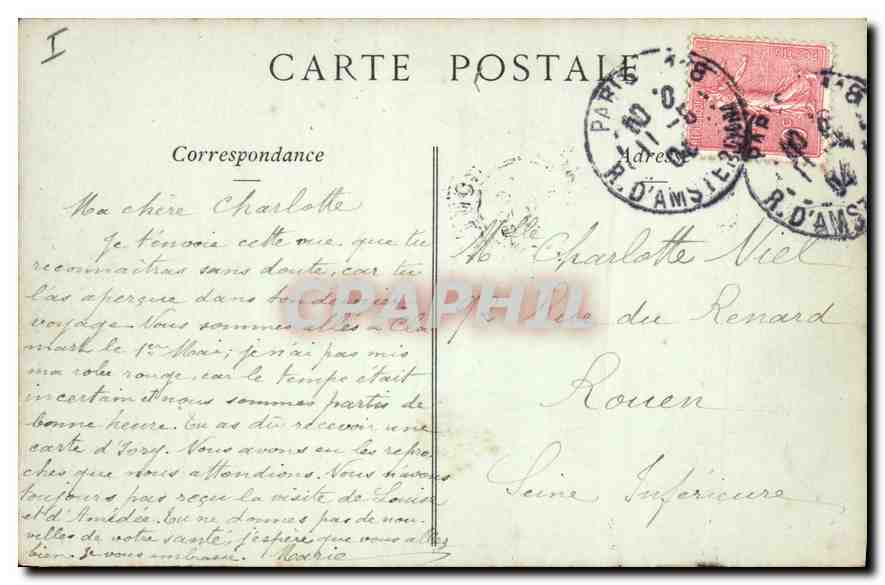 I
CARTE POSTALE
Correspondance
Adresse
Ma chère Charlotte
Je t'envoie cette vue, que tu
reconnaîtras sans doute, car tu
l'as aperçue dans ton dernier
voyage. Nous sommes allés à Cla
mart le 1er Mai; je n'ai pas mis
ma robe rouge, car le temps était
incertain et nous sommes partis de
bonne heure. Tu as dû recevoir une
carte d'Ivry. Nous avons eu les repro-
ches que nous attendions. Nous n'avons
toujours pas reçu la visite de Louise
et d'Amédée. Tu ne donnes pas de nou-
velles de votre santé, j'espère que vous allez
bien. Je vous embrasse. Marie
Mlle Charlotte Viel
Rue du Renard
Rouen
Seine Inférieure
PARIS
R. D'AMSTERDAM
PARIS
R. D'AMS
CPAPHIL